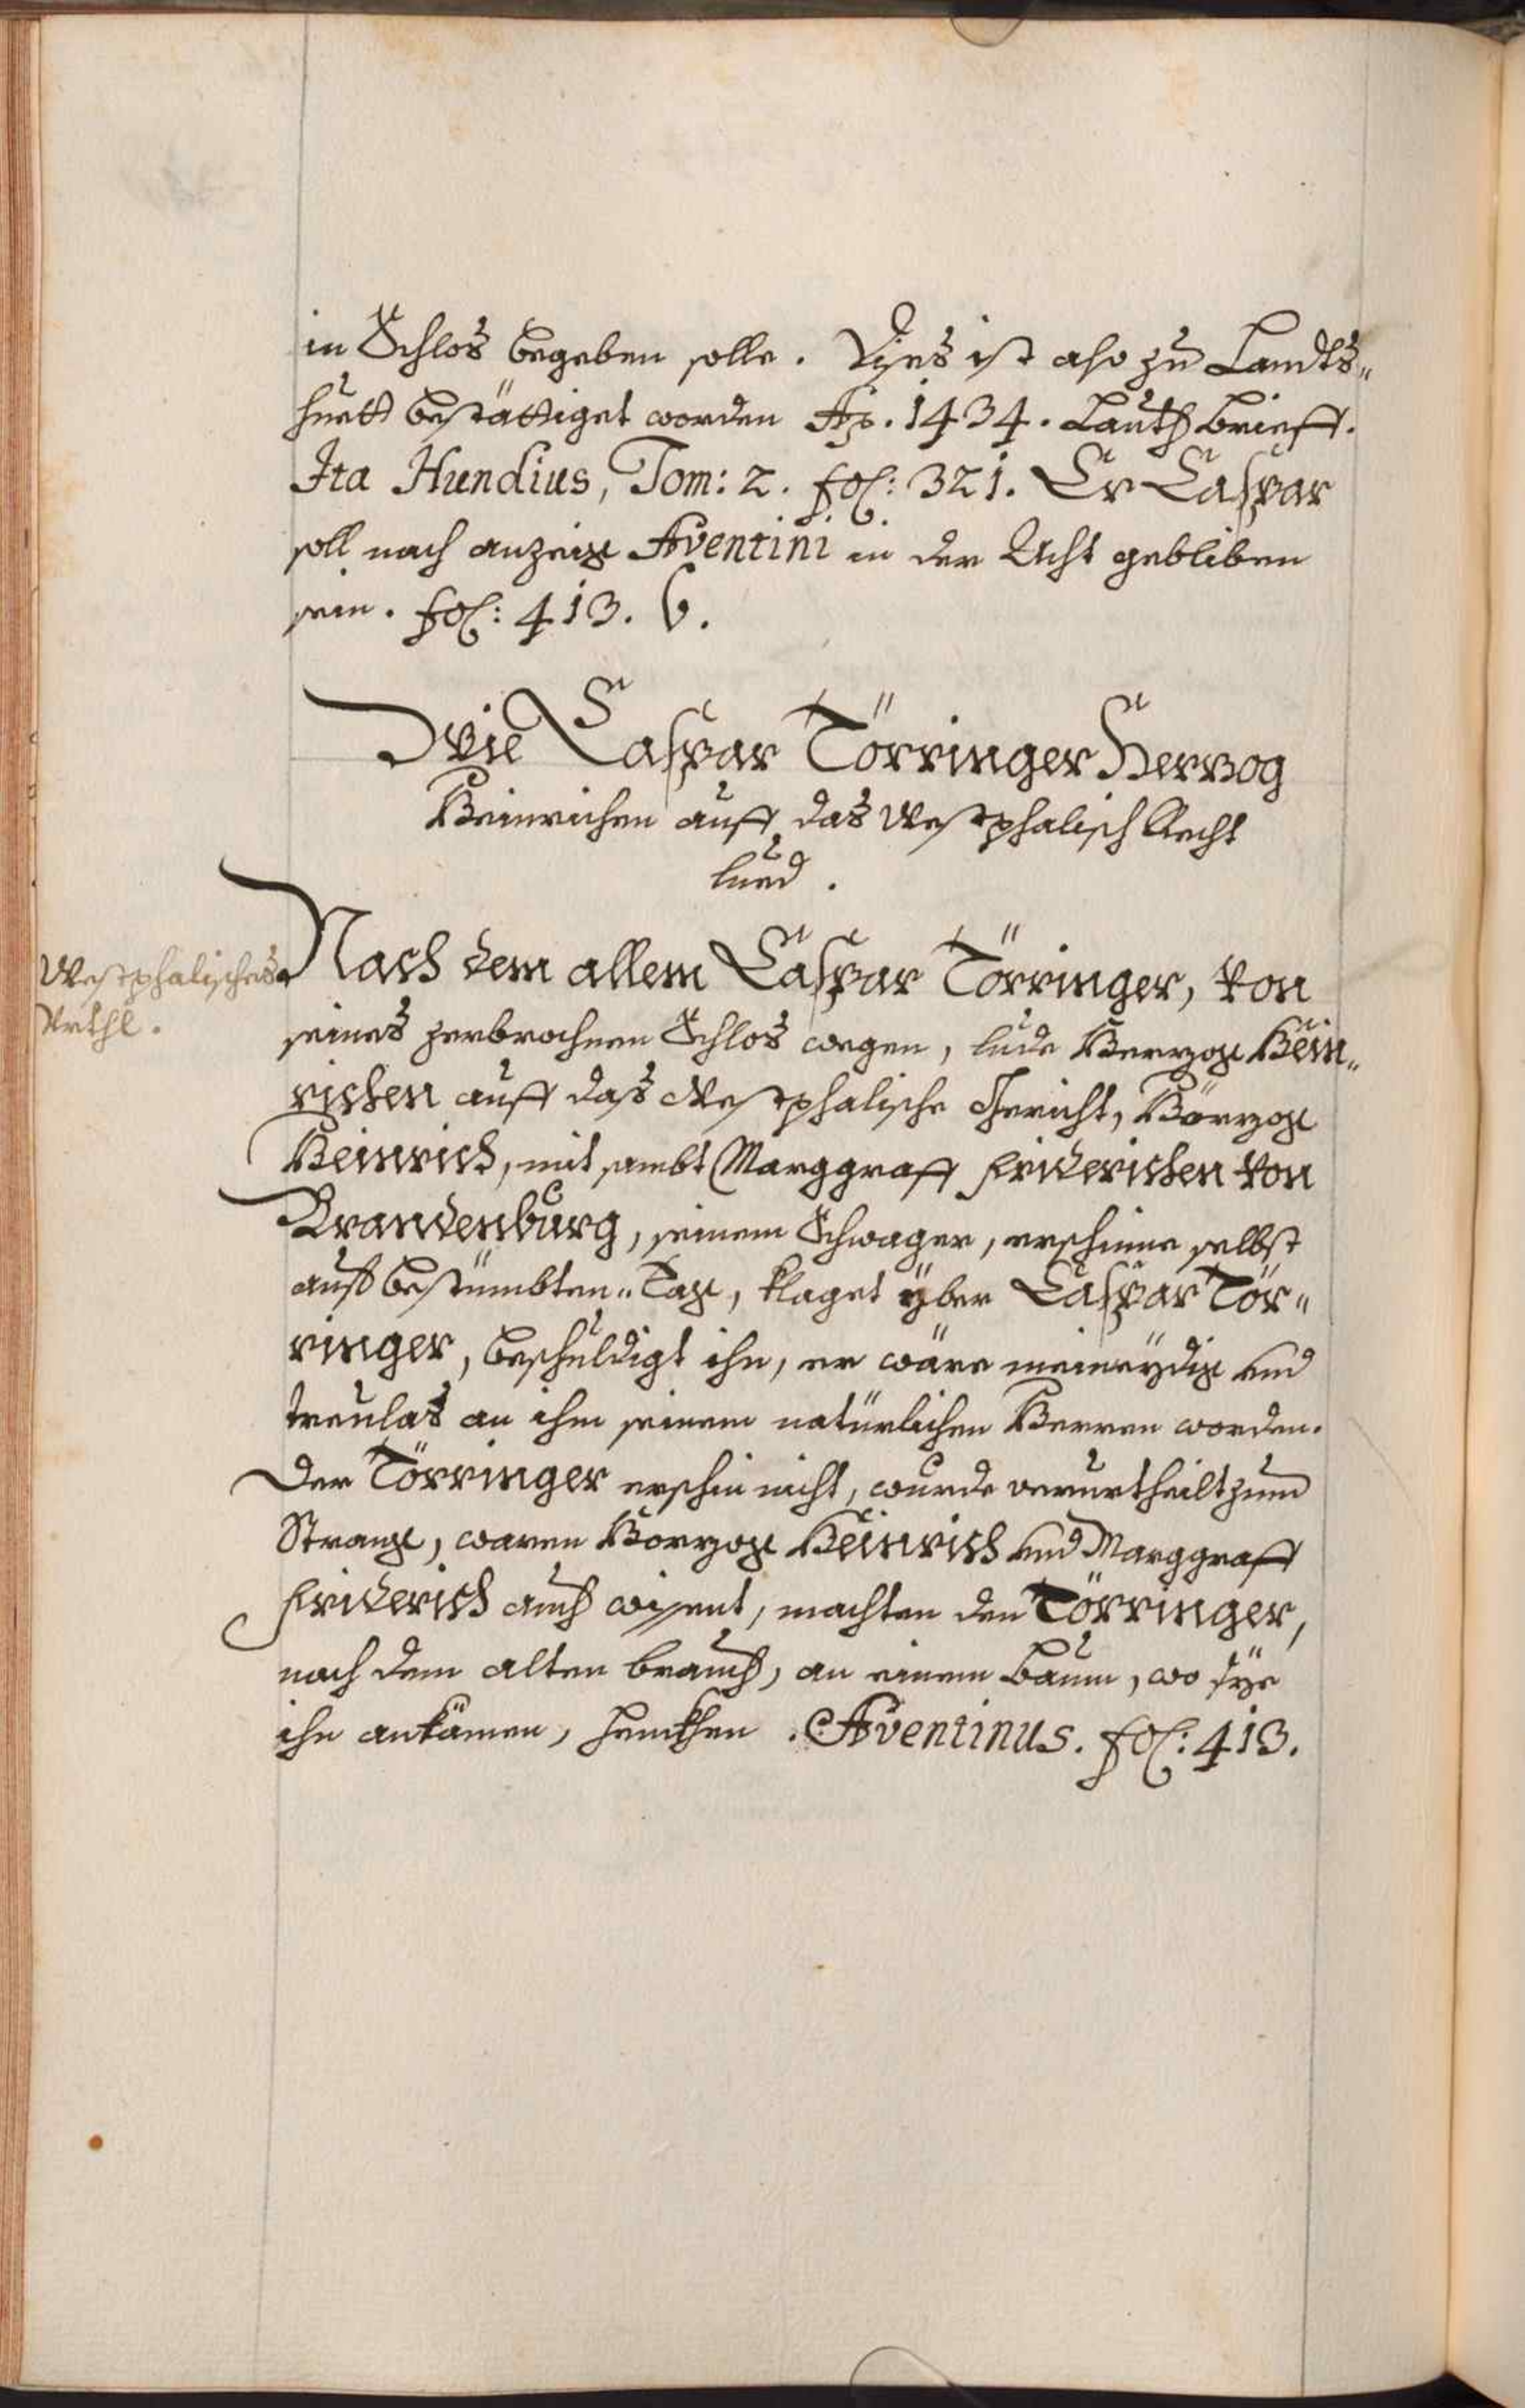 in Schlos begeben solle. Dises ist also zu Landts„
huett bestättiget worden Ao. 1434. Lauth Brieff.
Ita Hundius, Tom: 2. fol: 321. Er Caspar
soll nach anzeig Aventini in der Acht gebliben
sein. fol: 413. b.
Wie Caspar Törringer Herzog
Heinrichen auff das Westphalisch Recht
lued.
Westphalisches
Vrthl.
Nach dem allem Caspar Törringer, von
seines zerbrochnen Schlos wegen, lude Herzog Hein„
richen auff daß Westphalische Gericht, Hörzog
Heinrich, mit sambt Marggraff Friderichen von
Brandenburg, seinem Schwager, erschinne selbst
auf bestümbten„ Tag, klaget yber Caspar Tör„
ringer, beschuldigt ihn, er wäre maineydig vnd
treulas an ihm seinem natürlichen Herren worden.
Der Törringer erschin nicht, wurde verurtheilt zum
Strang, waren Herzog Heinrich vnd Marggraff
Friderich auch wissent, machten den Törringer,
nach dem alten brauch, an einem Baum, wo sye
ihn ankämen, henckhen. Aventinus. fol: 413.